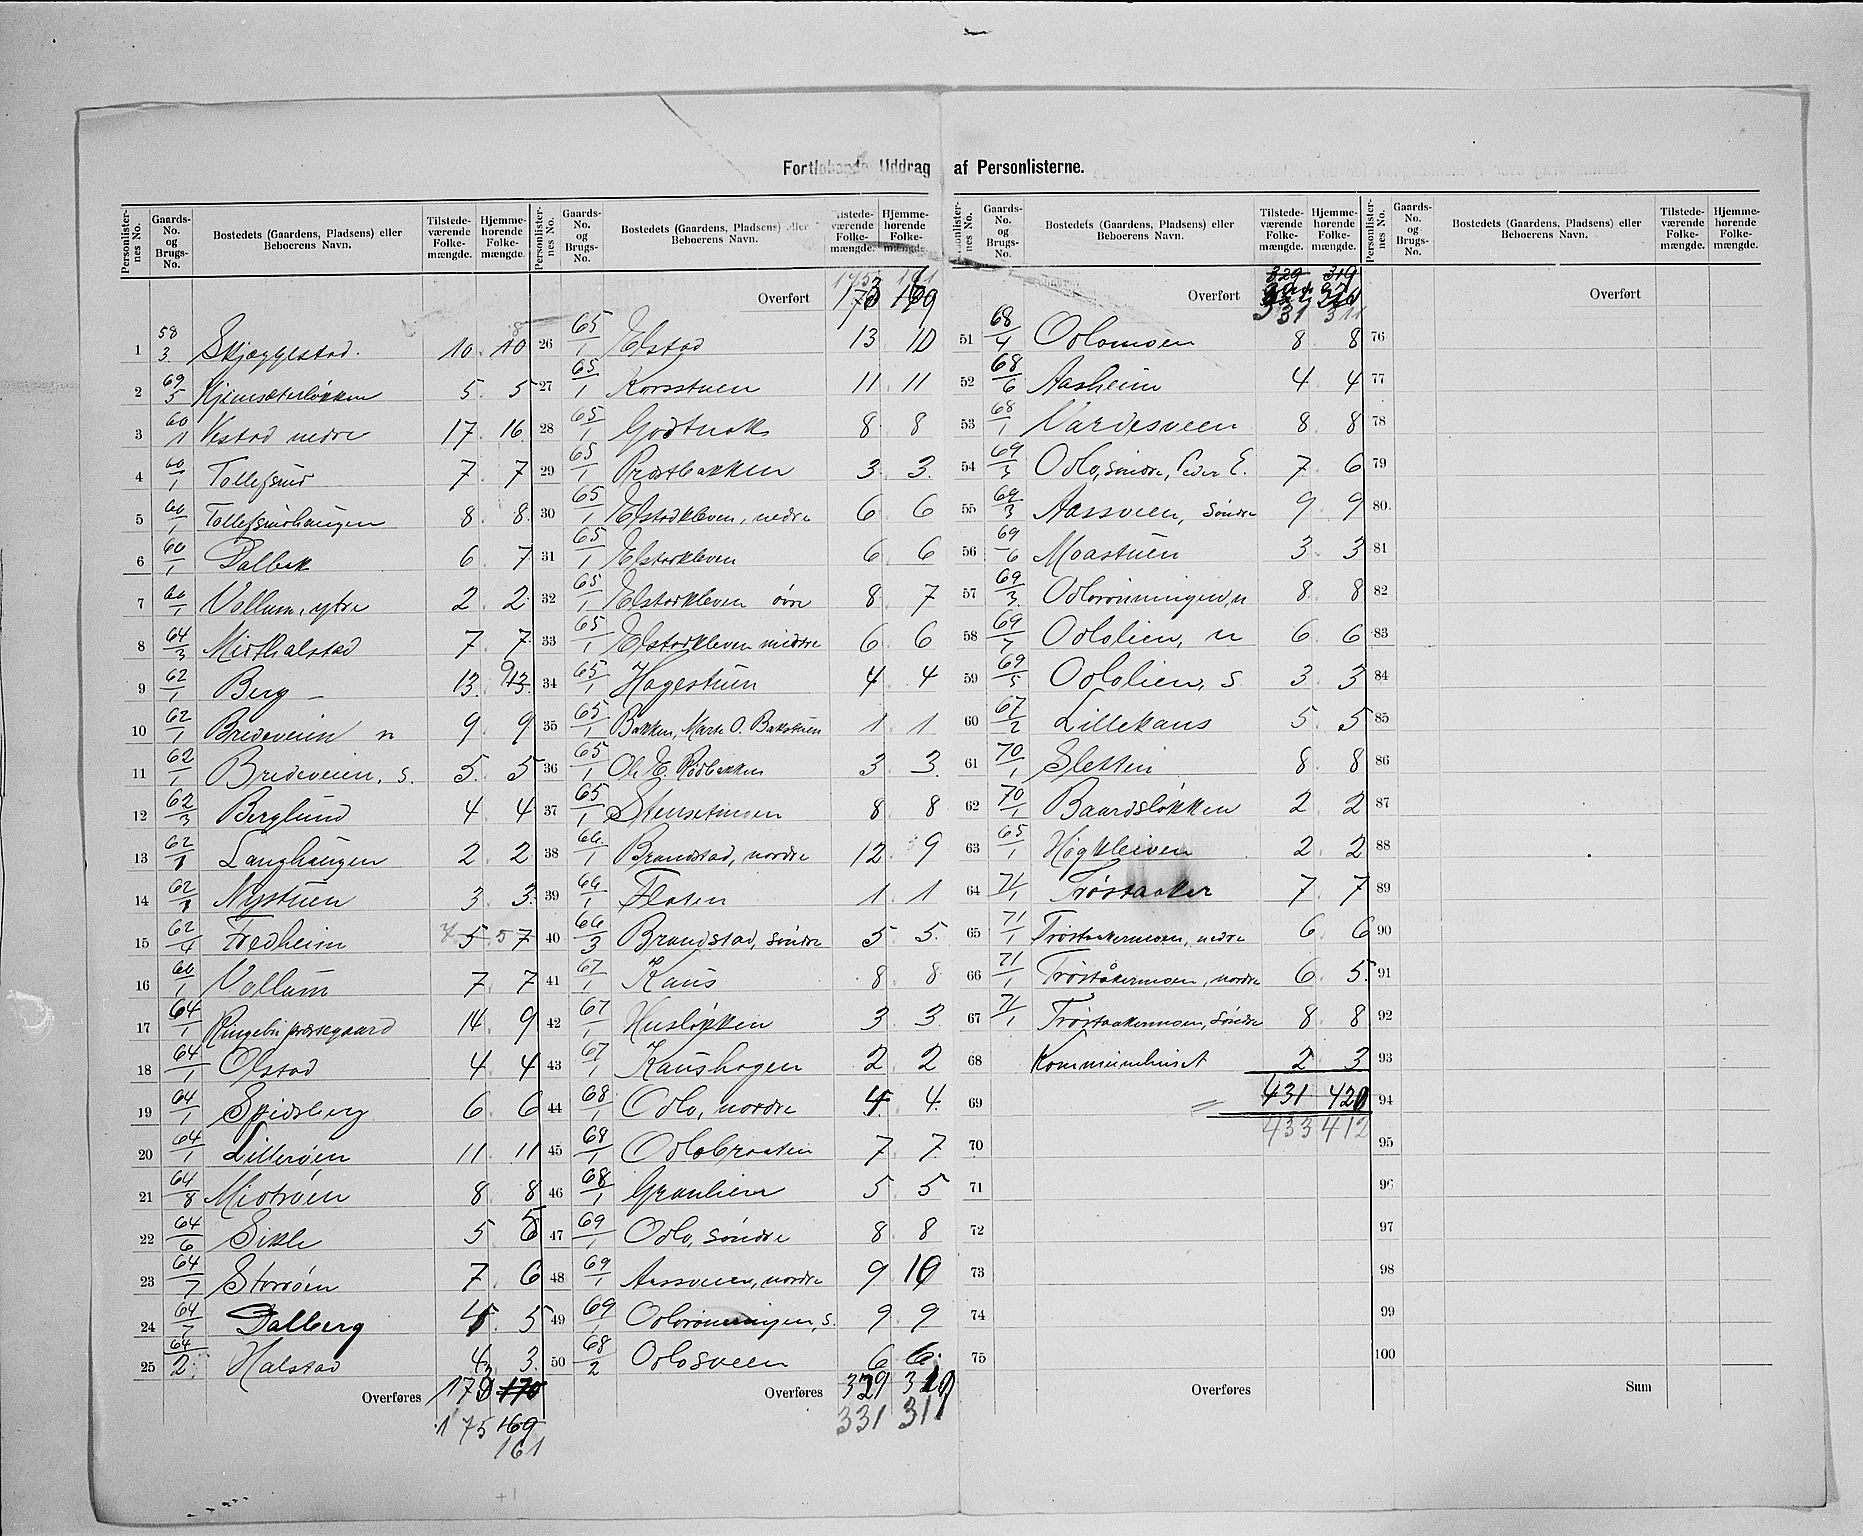 Fortløbende Uddrag af Personlisterne.
Personlister-nes No. | Gaards-No. og Brugs-No. | Bostedets (Gaardens, Pladsens) eller Beboerens Navn. | Tilstede-værende Folke-mængde. | Hjemme-hørende Folke-mængde.
1 58/3 Skjæggestad. 10. 10 8
2 69/5 Kjemsæterløkken 5. 5
3 60/1 Vestad nedre 17. 16
4 60/1 Tollefsrud 7. 7
5 60/1 Tollefsrudhaugen 8. 8
6 60/1 Dalbak 6. 7
7 60/1 Vollum, ytre 2. 2
8 64/3 Midthalstad 7. 7
9 62/1 Berg 13. 13
10 62/1 Bredeveien n 9. 9
11 62/1 Bredeveien, s. 5. 5
12 62/3 Berglund 4. 4
13 62/1 Langhaugen 2. 2
14 62/1 Nystuen 3. 3
15 62/4 Fredheim 7 5 5 7
16 60/1 Vollum 7. 7
17 64/1 Ringebu præstegaard 14. 9
18 64/1 Olstad 4. 4
19 64/1 Spidsberg 6. 6
20 64/1 Lillerøen 11. 11
21 64/8 Midtrøen 8. 8
22 64/6 Sikle 5 6 5
23 64/7 Storrøen 7. 6
24 64/7 Dalberg 5. 5
25 64/2 Halstad 4 3.
Overføres 173 170
175 169
161
Personlister-nes No. | Gaards-No. og Brugs-No. | Bostedets (Gaardens, Pladsens) eller Beboerens Navn. | Tilstede-værende Folke-mængde. | Hjemme-hørende Folke-mængde.
175 161
Overført 173 169
26 65/1 Elstad 13 10
27 65/1 Korsstuen 11 11
28 65/1 Godtnok 8 8
29 65/1 Prestbakken 3. 3.
30 65/1 Elstadkleven, nedre 6 6
31 65/1 Elstadkleven 6 6
32 65/1 Elstadkleven øvre 8. 7
33 65/1 Elstadkleven midtre 6 6
34 65/1 Hagestuen 4 4
35 65/1 Bakken, Marte O. Bakstuen 1. 1
36 65/1 Ole E. Rødbakken 3 3.
37 65/1 Stensetmoen 8 8
38 66/1 Brandstad, nordre 12. 9
39 66/1 Flaten 1. 1
40 66/3 Brandstad, søndre 5 5.
41 67/1 Kaus 8 8
42 67/1 Husløkken 3. 3.
43 67/1 Kaushagen 2 2
44 68/1 Odlo, nordre 4. 4.
45 68/1 Odlobraaten 7 7.
46 68/1 Granlien 5 5
47 69/1 Odlo, søndre 8 8
48 69/1 Aassveen, nordre 9 10
49 69/1 Odlorønningen, s. 9 9
50 68/2 Odlosveen 6 6.
Overføres 329 319
331 311
Personlister-nes No. | Gaards-No. og Brugs-No. | Bostedets (Gaardens, Pladsens) eller Beboerens Navn. | Tilstede-værende Folke-mængde. | Hjemme-hørende Folke-mængde.
329 319
Overført
331 311
51 68/4 Odlomoen 8. 8
52 68/6 Aasheim 4 4
53 68/1 Vardesveen 8. 8
54 69/3 Odlo, søndre, Peder E. 7. 6
55 69/3 Aassveen, søndre 9. 9
56 69/6 Moastuen 3 3
57 69/3. Odlorønningen, n 8. 8
58 69/7 Odlolien, n 6. 6
59 69/5 Odlolien, s 3. 3
60 67/2 Lillekaus 5. 5
61 70/1 Sletten 8. 8
62 70/1 Baardsløkken 2. 2
63 65/1 Høgkleiven 2. 2
64 71/1 Trøstaaker 7. 7
65 71/1 Trøstaakermoen, nedre 6. 6
66 71/1 Trøståkermoen, nordre 6. 5
67 71/1 Trøstaakermoen, søndre 8. 8
68 Kommunehuset 2. 3
69 = 431 420
70 433 412
71
72
73
74
75
Overføres
Personlister-nes No. | Gaards-No. og Brugs-No. | Bostedets (Gaardens, Pladsens) eller Beboerens Navn. | Tilstede-værende Folke-mængde. | Hjemme-hørende Folke-mængde.
Overført
76
77
78
79
80
81
82
83
84
85
86
87
88
89
90
91
92
93
94
95
96
97
98
99
100
Sum
+1